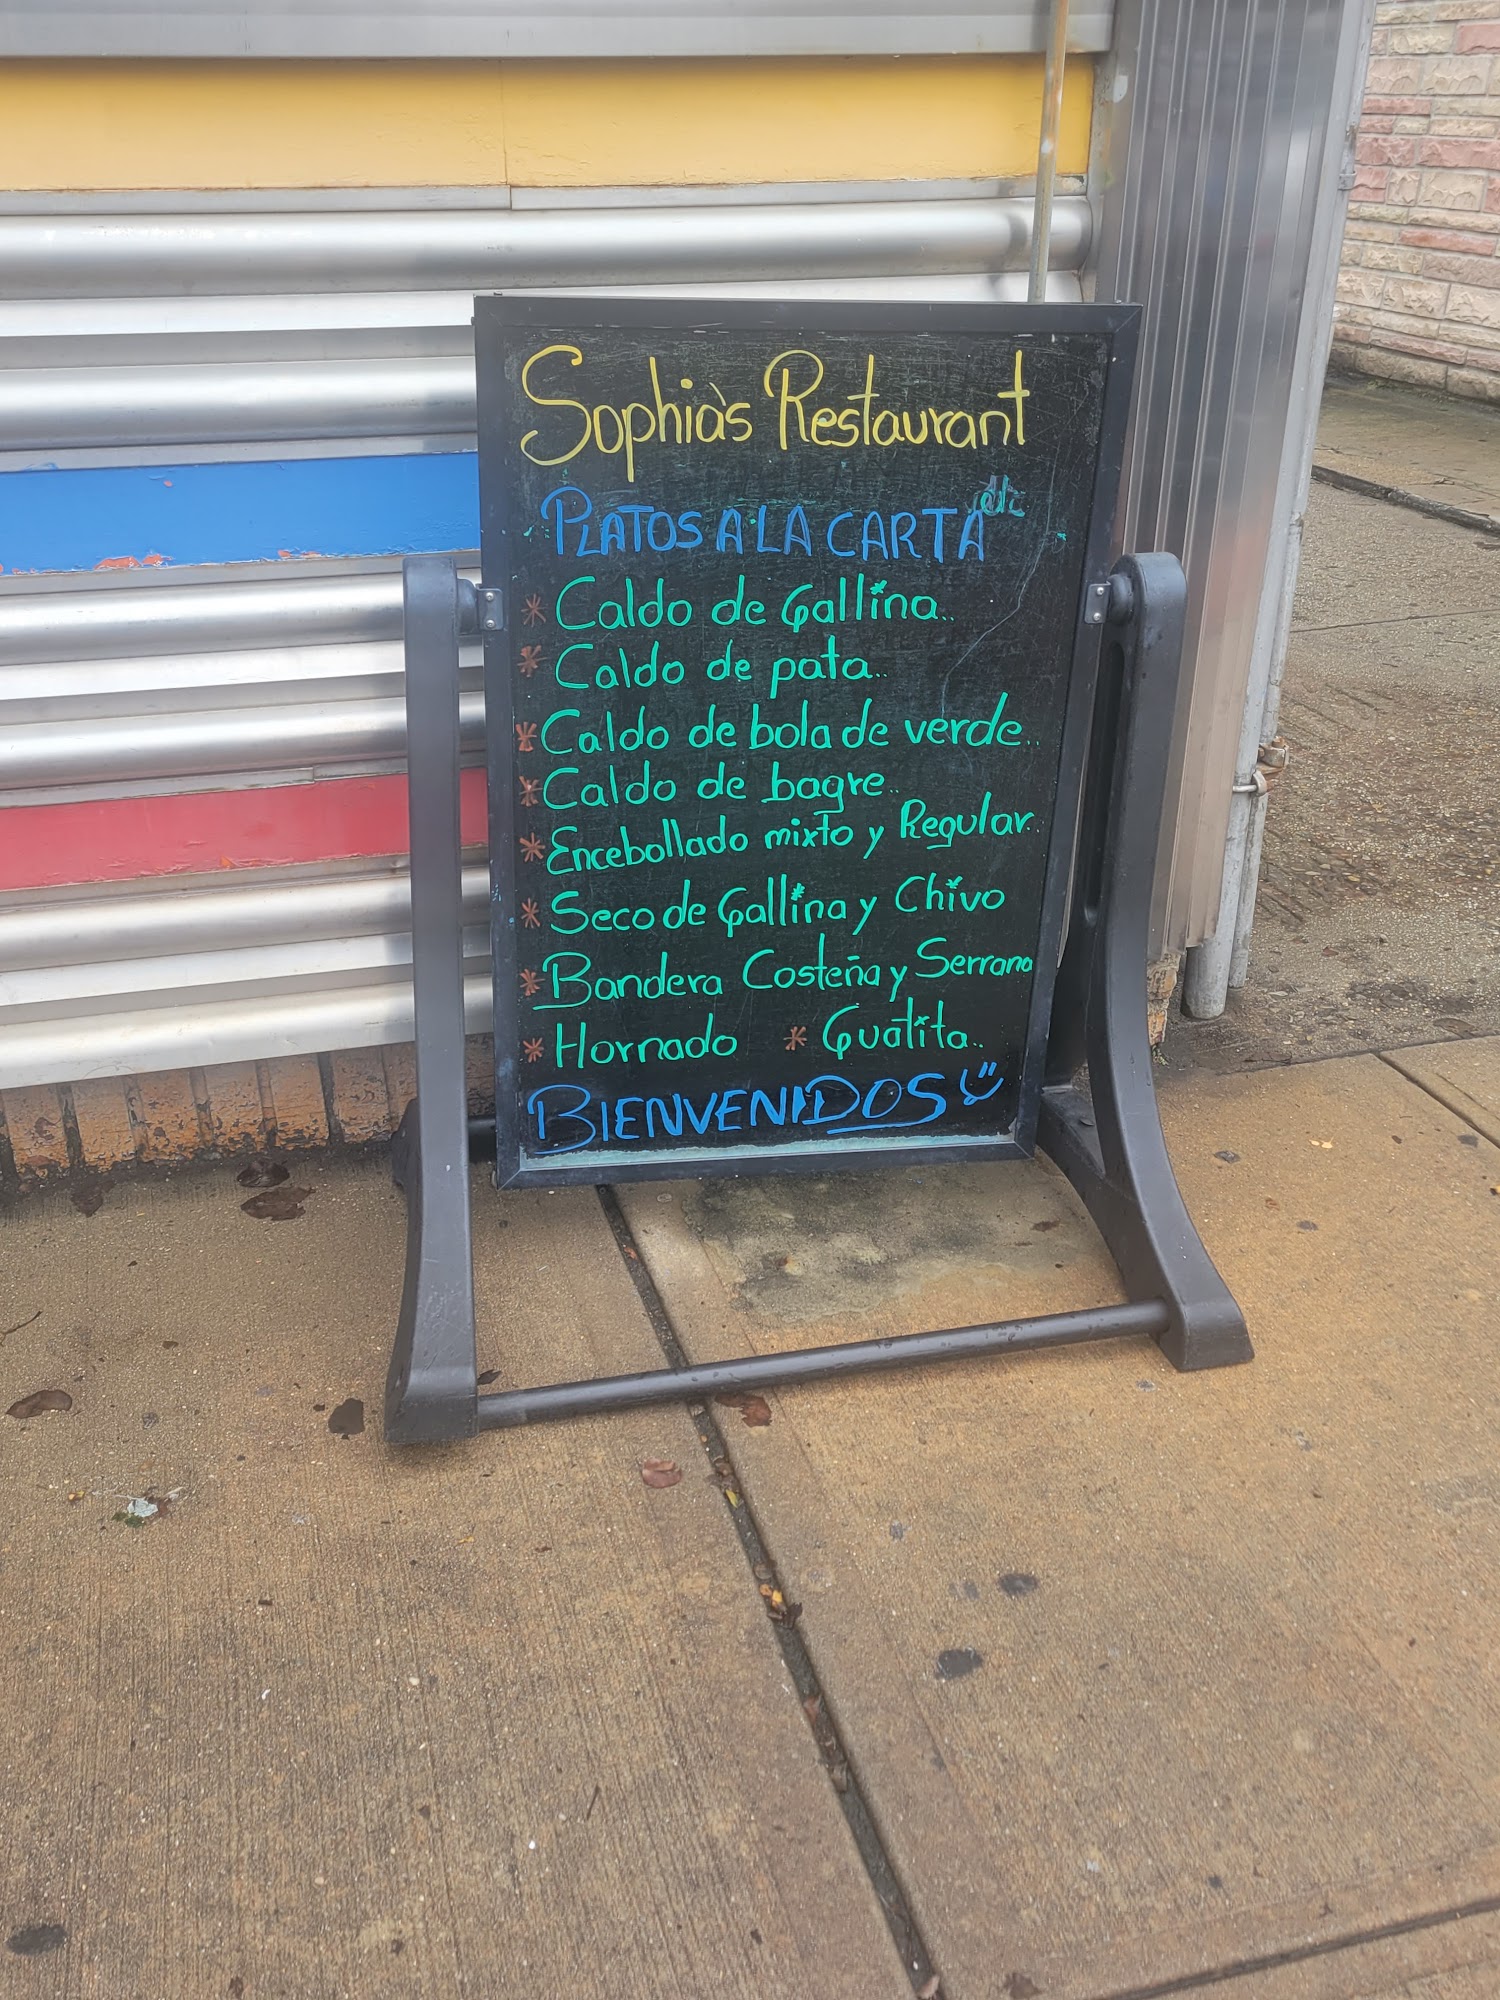 Sophia's Restaurant
PLATOS A LA CARTA
* Caldo de Gallina..
* Caldo de pata..
* Caldo de bola de verde..
* Caldo de bagre..
* Encebollado mixto y Regular..
* Seco de Gallina y Chivo
* Bandera Costeña y Serrana
* Hornado * Guatita..
BIENVENIDOS